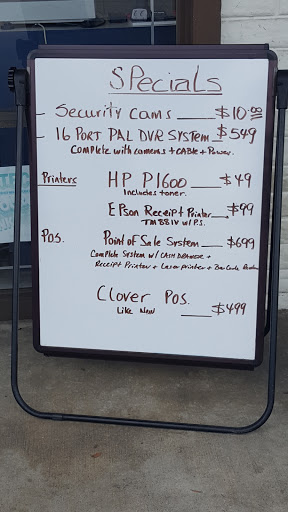 SPecials
– Security Cams — $10.00
– 16 PORT PAL DVR SYSTEM – $549
Complete with cameras + CABLE + Power.
Printers HP P1600 — $49
Includes toner.
EPson Receipt Printer — $99
TM88IV w/P.S.
POS. Point of Sale System — $699
Complete System w/ CASH DRAWER +
Receipt Printer + Laser printer + Bar Code Reader
Clover POS. — $499
Like New